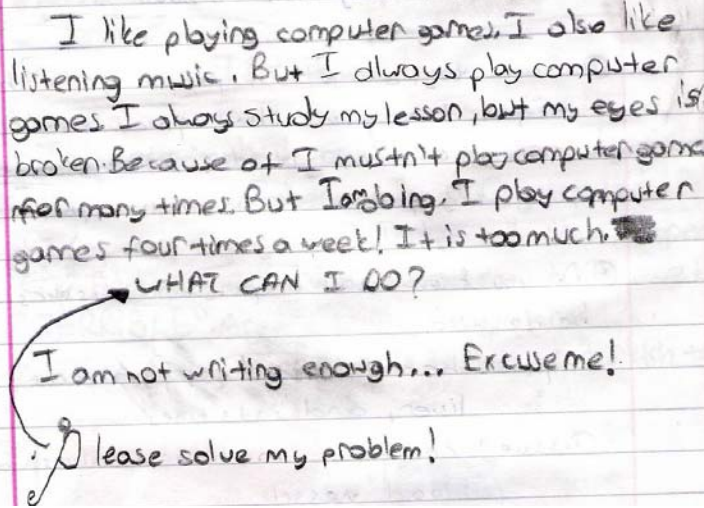 I like playing computer games. I also like
listening music. But I always play computer
games. I always study my lesson, but my eyes is
broken. Because of I mustn't play computer game
for many times. But I am doing. I play computer
games four times a week! It is too much.
WHAT CAN I DO?
I am not writing enough... Excuse me!
Please solve my problem!